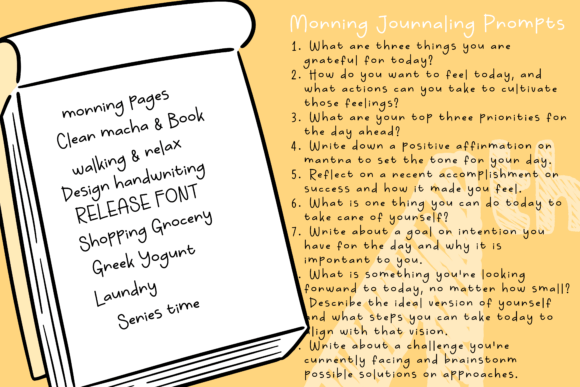 morning pages
Clean macha & Book
walking & relax
Design handwriting
RELEASE FONT
Shopping Grocery
Greek Yogurt
Laundry
Series time
Morning Journaling Prompts
1. What are three things you are
grateful for today?
2. How do you want to feel today, and
what actions can you take to cultivate
those feelings?
3. What are your top three priorities for
the day ahead?
4. Write down a positive affirmation or
mantra to set the tone for your day.
5. Reflect on a recent accomplishment or
success and how it made you feel.
6. What is one thing you can do today to
take care of yourself?
7. Write about a goal or intention you
have for the day and why it is
important to you.
. What is something you're looking
forward to today, no matter how small?
Describe the ideal version of yourself
and what steps you can take today to
lign with that vision.
. Write about a challenge you're
currently facing and brainstorm
possible solutions or approaches.